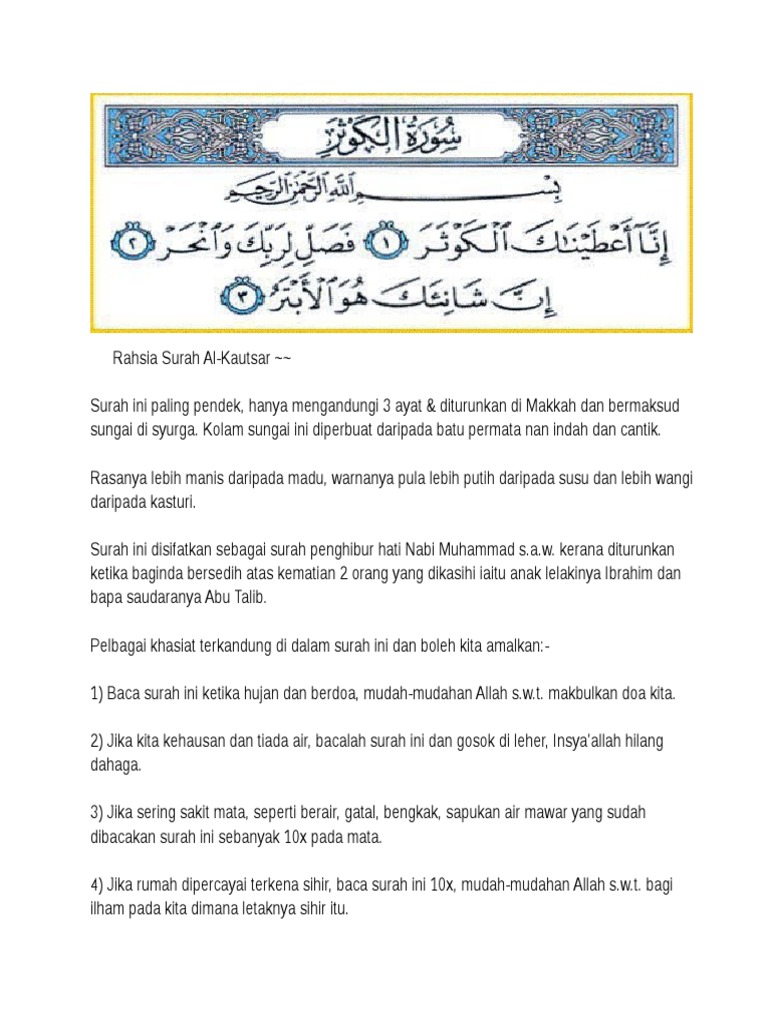 سُورَةُ الكَوْثَرِ
بِسْمِ اللَّهِ الرَّحْمَٰنِ الرَّحِيمِ
إِنَّآ أَعْطَيْنَٰكَ ٱلْكَوْثَرَ ١ فَصَلِّ لِرَبِّكَ وَٱنْحَرْ ٢
إِنَّ شَانِئَكَ هُوَ ٱلْأَبْتَرُ ٣
Rahsia Surah Al-Kautsar ~~
Surah ini paling pendek, hanya mengandungi 3 ayat & diturunkan di Makkah dan bermaksud
sungai di syurga. Kolam sungai ini diperbuat daripada batu permata nan indah dan cantik.
Rasanya lebih manis daripada madu, warnanya pula lebih putih daripada susu dan lebih wangi
daripada kasturi.
Surah ini disifatkan sebagai surah penghibur hati Nabi Muhammad s.a.w. kerana diturunkan
ketika baginda bersedih atas kematian 2 orang yang dikasihi iaitu anak lelakinya Ibrahim dan
bapa saudaranya Abu Talib.
Pelbagai khasiat terkandung di dalam surah ini dan boleh kita amalkan:-
1) Baca surah ini ketika hujan dan berdoa, mudah-mudahan Allah s.w.t. makbulkan doa kita.
2) Jika kita kehausan dan tiada air, bacalah surah ini dan gosok di leher, Insya'allah hilang
dahaga.
3) Jika sering sakit mata, seperti berair, gatal, bengkak, sapukan air mawar yang sudah
dibacakan surah ini sebanyak 10x pada mata.
4) Jika rumah dipercayai terkena sihir, baca surah ini 10x, mudah-mudahan Allah s.w.t. bagi
ilham pada kita dimana letaknya sihir itu.